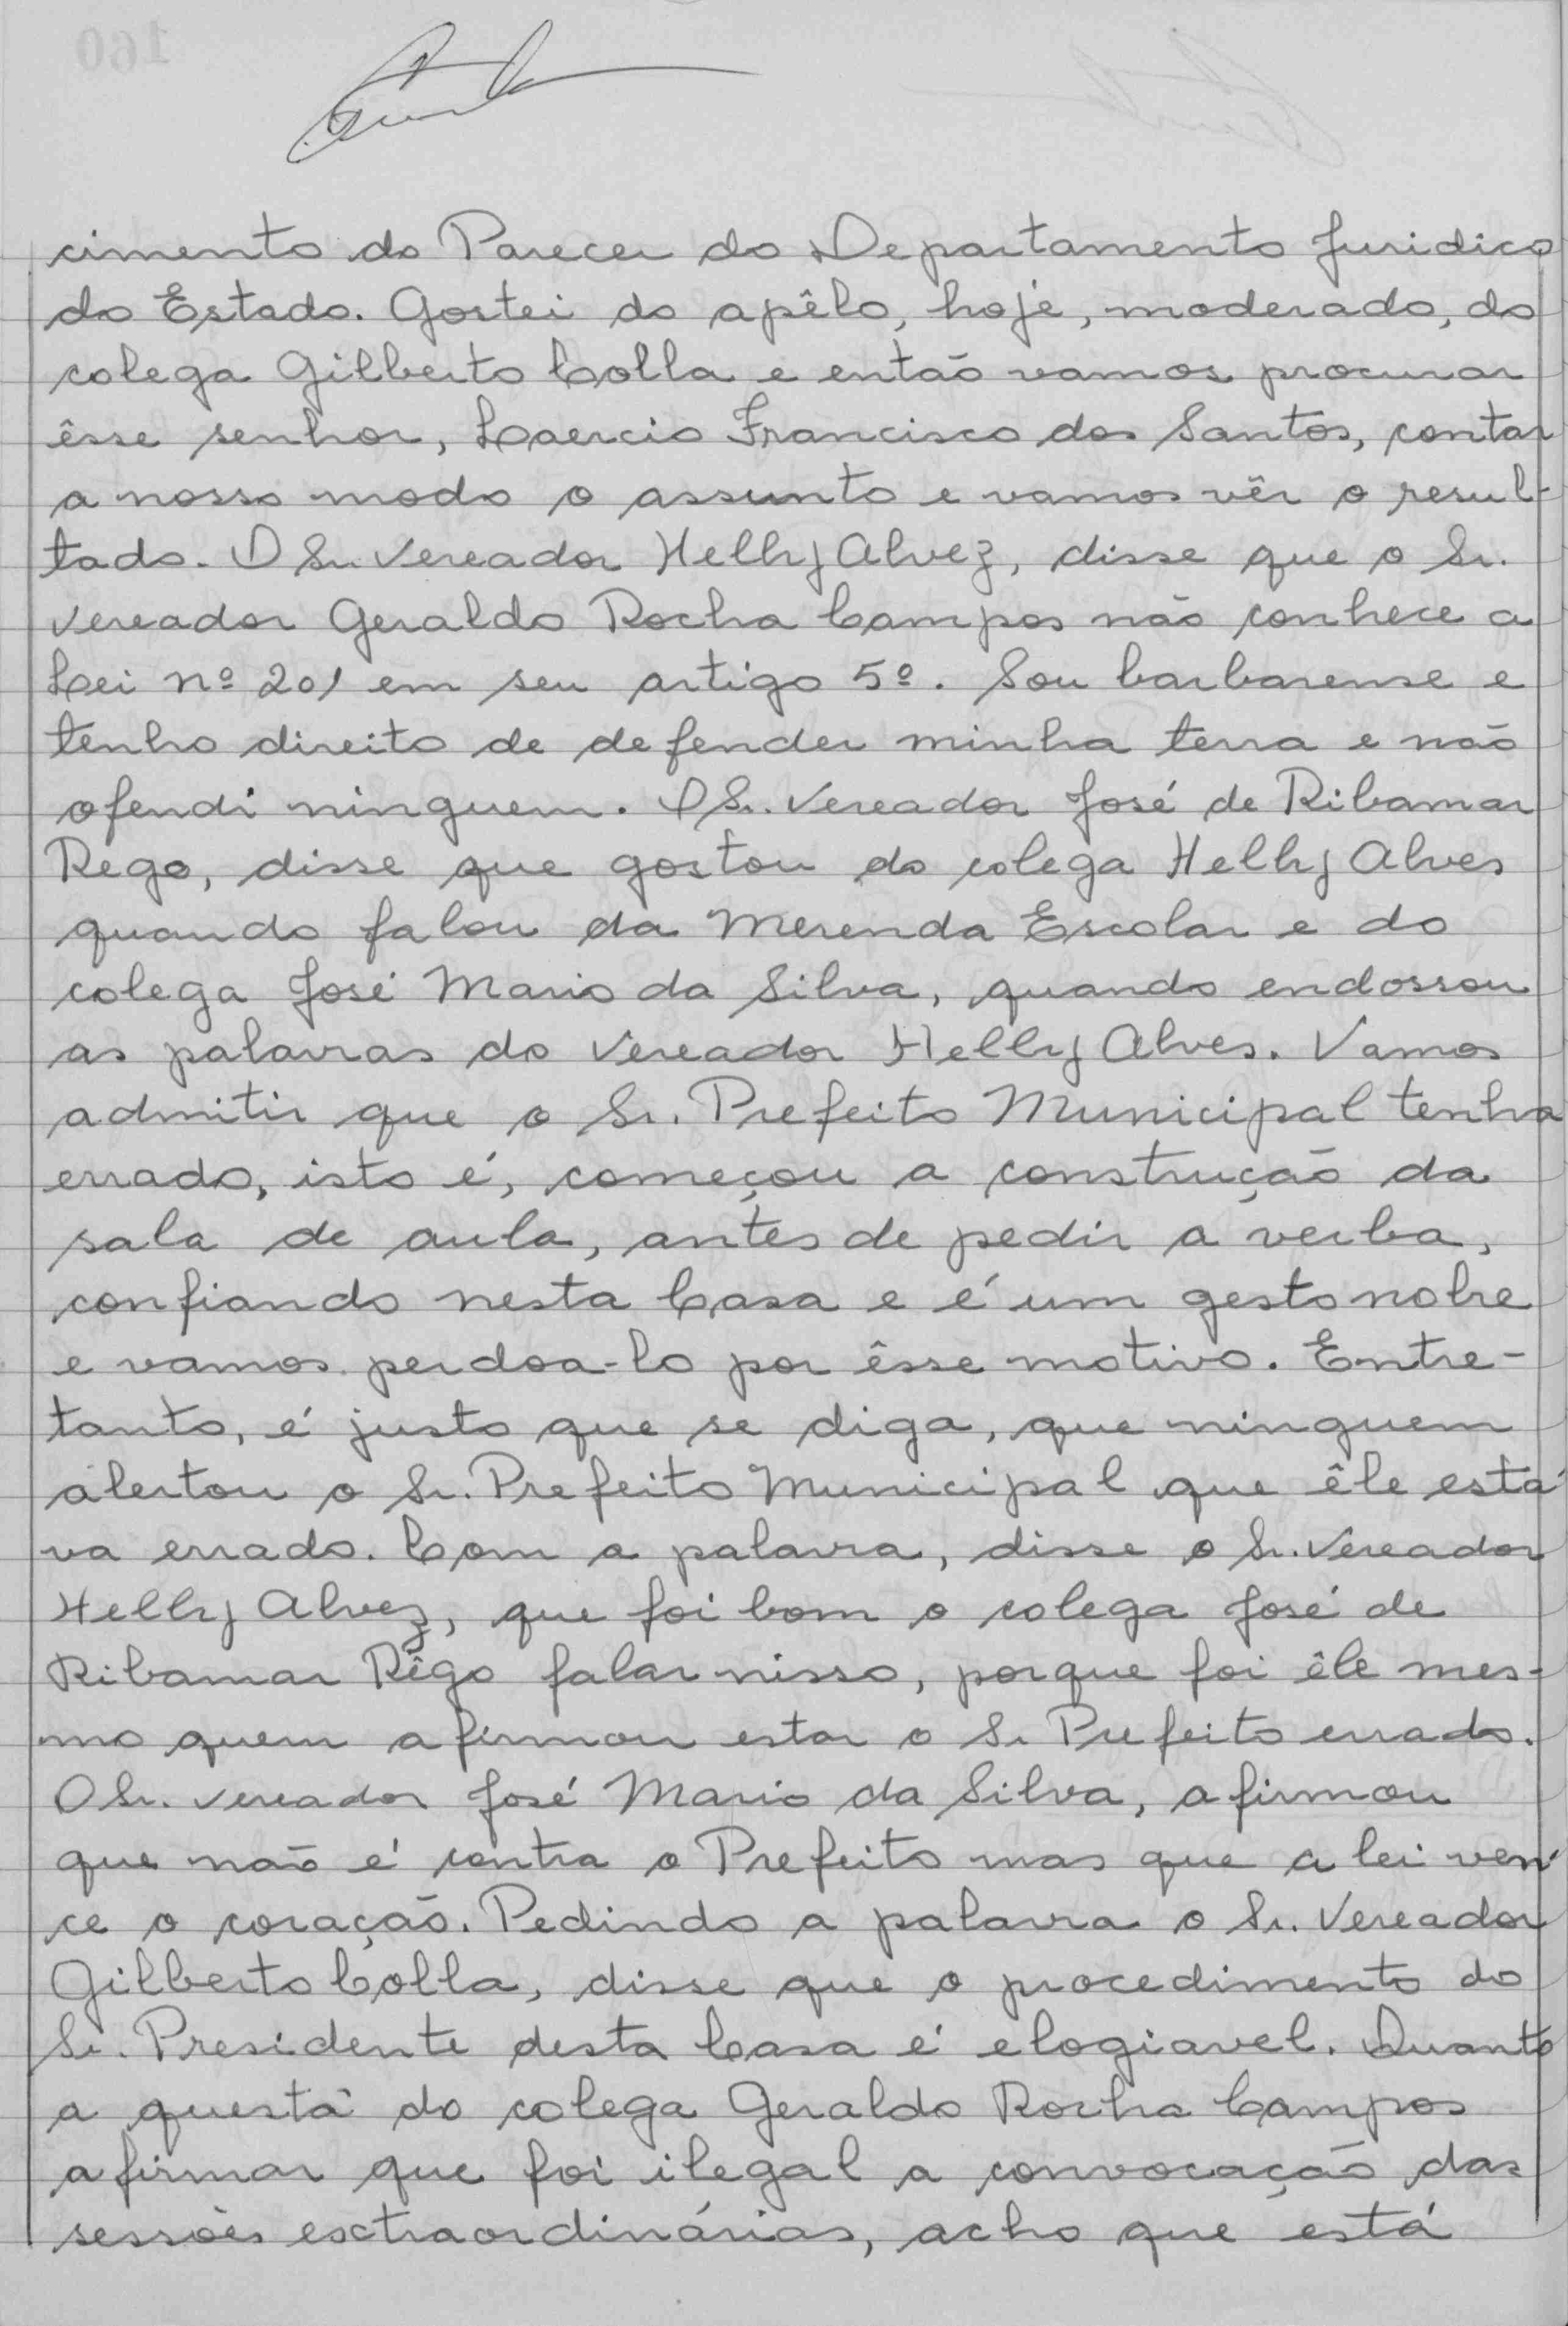 cimento do Parecer do Departamento Juridico
do Estado. Gostei do apêlo, hoje, moderado, do
colega Gilberto Colla e então vamos procurar
êsse senhor, Laercio Francisco dos Santos, contar
a nosso modo o assunto e vamos vêr o resul-
tado. O Sr. Vereador Helly Alvez, disse que o Sr.
Vereador Geraldo Rocha Campos não conhece a
Lei nº 201 em seu artigo 5º. Sou barbarense e
tenho direito de defender minha terra e não
ofendi ninguem. O Sr. Vereador José de Ribamar
Rego, disse que gostou do colega Helly Alves
quando falou da Merenda Escolar e do
colega José Mario da Silva, quando endossou
as palavras do Vereador Helly Alves. Vamos
admitir que o Sr. Prefeito Municipal tenha
errado, isto é, começou a construção da
sala de aula, antes de pedir a verba,
confiando nesta Casa e é um gesto nobre
e vamos perdoa-lo por êsse motivo. Entre-
tanto, é justo que se diga, que ninguem
alertou o Sr. Prefeito Municipal que êle esta-
va errado. Com a palavra, disse o Sr. Vereador
Helly Alvez, que foi bom o colega José de
Ribamar Rêgo falar nisso, porque foi êle mes-
mo quem afirmou estar o Sr Prefeito errado.
O Sr. Vereador José Mario da Silva, afirmou
que não é contra o Prefeito mas que a lei ven-
ce o coração. Pedindo a palavra o Sr. Vereador
Gilberto Colla, disse que o procedimento do
Sr. Presidente desta Casa é elogiavel. Quanto
a questã do colega Geraldo Rocha Campos
afirmar que foi ilegal a convocação das
sessões extraordinárias, acho que está